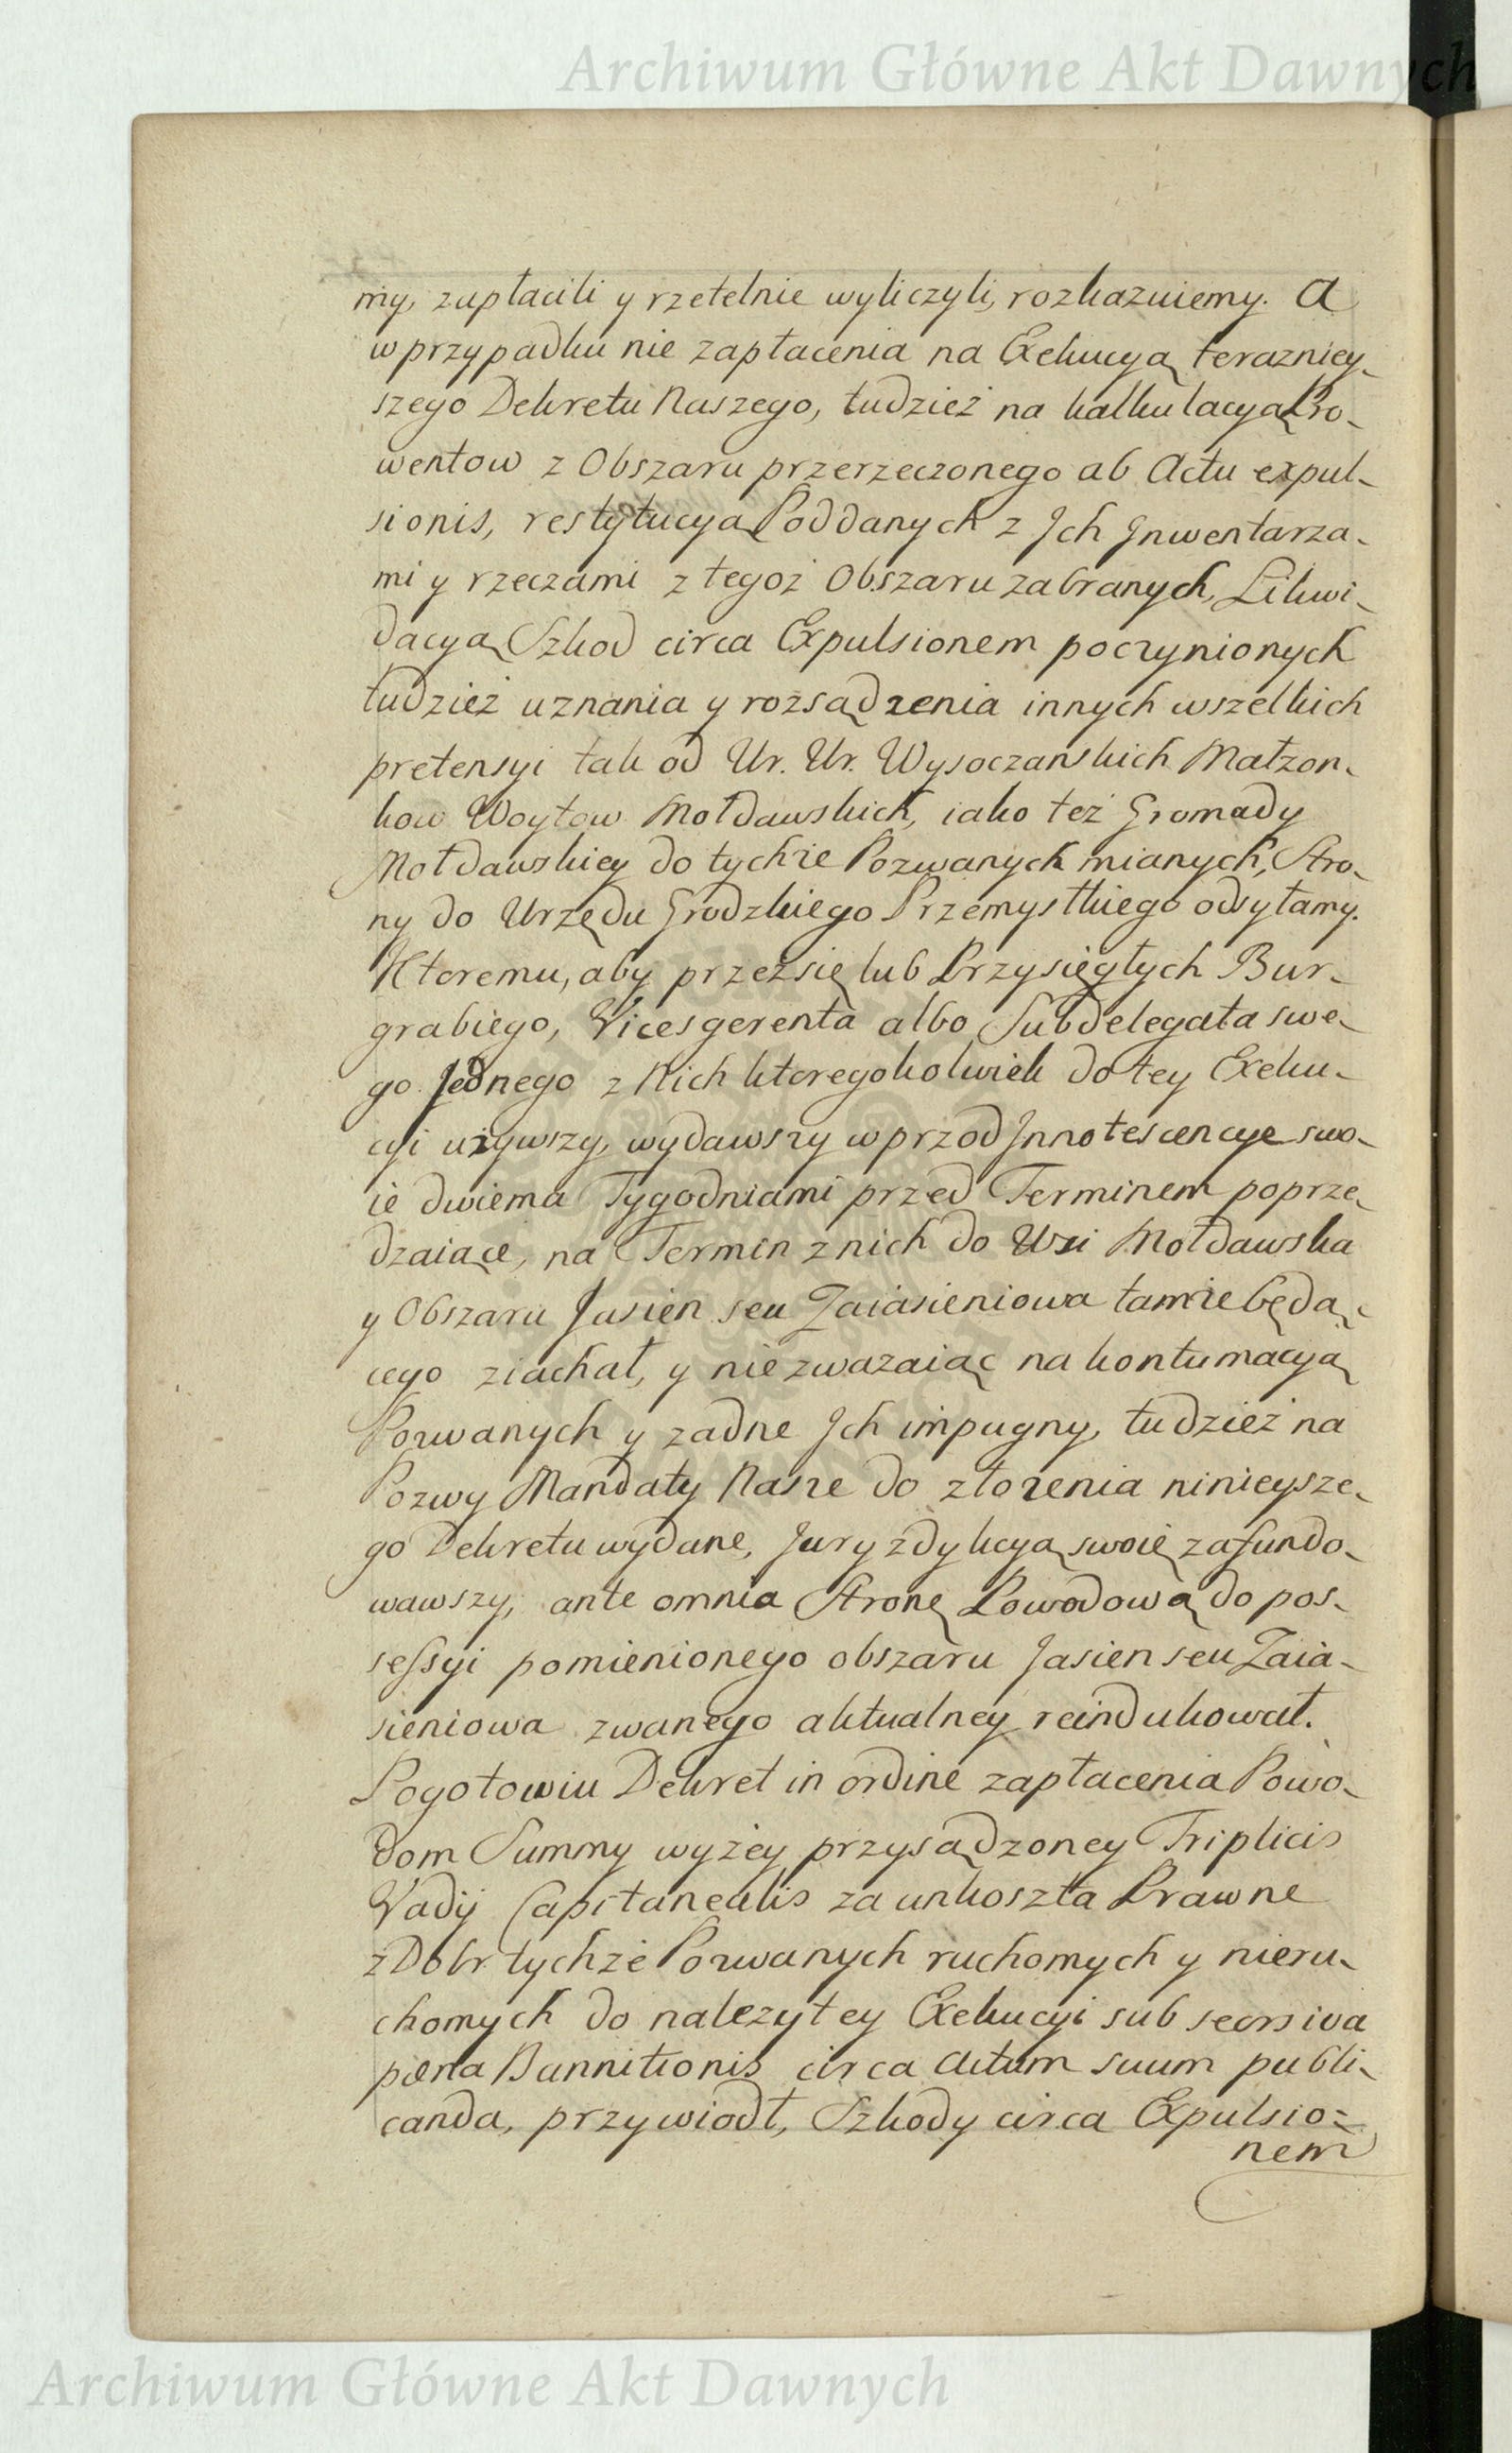 Archiwum Główne Akt Dawnych
my, zapłacili y rzetelnie wyliczyli, rozkazuiemy. A
w przypadku nie zapłacenia na Exekucyą terazniey-
szego Dekretu Naszego, tudzież na kalkulacyą Pro-
wentow z Obszaru przerzeczonego ab Actu expul-
sionis, restytucyą Poddanych z Jch Jnwentarza-
mi y rzeczami z tegoż Obszaru zabranych, Likwi-
dacyą Szkod circa Expulsionem poczynionych
tudzież uznania y rozsądzenia innych wszelkich
pretensyi tak od Ur. Ur. Wysoczanskich Małzon-
kow Woytow Mołdawskich, iako też Gromady
Mołdawskiey do tychże Pozwanych mianych, Stro-
ny do Urzędu Grodzkiego Przemyslkiego odsyłamy.
Ktoremu, aby przez się lub Przysięgłych Bur-
grabiego, Vicesgerenta albo Subdelegata swe-
go Jednego z Nich ktoregokolwiek do tey Exeku-
cyi używszy, wydawszy wprzod Jnnotescencye swo-
ie dwiema Tygodniami przed Terminem poprze-
dzaiące, na Termin z nich do Wsi Mołdawska
y Obszaru Jasien seu Zaiasieniowa tamże będą-
cego ziachał, y nie zwazaiąc na kontumacyą
Pozwanych y zadne Jch impugny, tudzież na
Pozwy Mandaty Nasze do złożenia ninieysze-
go Dekretu wydane, Juryzdykcyą swoię zafundo-
wawszy, ante omnia Stronę Powodową do pos-
sessyi pomienionego obszaru Jasien seu Zaia-
sieniowa zwanego aktualney reindukował.
Pogotowiu Dekret in ordine zapłacenia Powo-
dom Summy wyżey przysądzoney Triplicis
Vadij Capitanealis za unkoszta Prawne
z Dobr tychże Pozwanych ruchomych y nieru-
chomych do nalezytey Exekucyi sub seorsiva
pœna Bannitionis circa Actum suum publi-
canda, przywiodł, Szkody circa Expulsio-
nem
Archiwum Główne Akt Dawnych